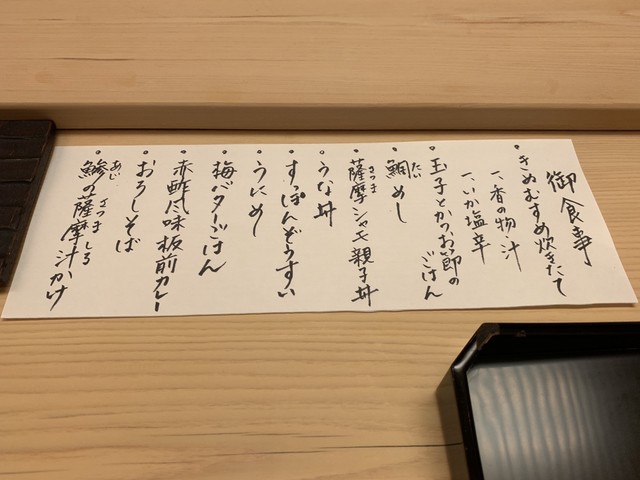 御食事
・きぬむすめ炊きたて
一、香の物、汁
一、いか塩辛
・玉子とかつお節の
ごはん
・鯛めし
たい
・薩摩シャモ親子丼
さつま
・うな丼
・すっぽんぞうすい
・うにめし
・梅バターごはん
・赤酢風味板前カレー
・おろしそば
・鯵の薩摩汁かけ
あじ さつましる